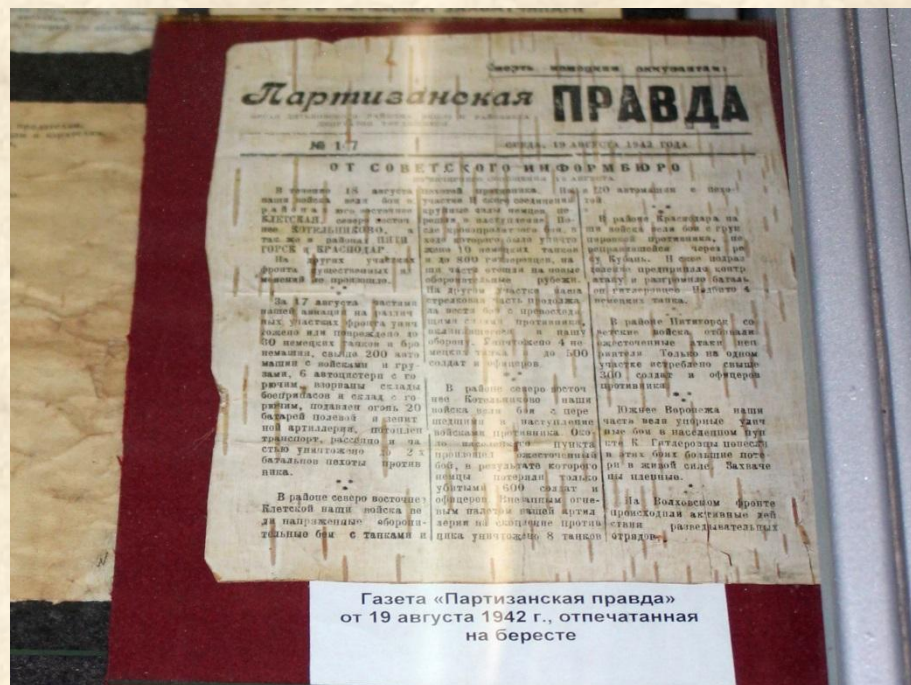 Смерть немецким оккупантам
Партизанская ПРАВДА
СРЕДА, 19 АВГУСТА 1942 ГОДА
ОТ СОВЕТСКОГО ИНФОРМБЮРО
В течение 18 августа
наши войска вели бои в
районах юго восточнее
КЛЕТСКАЯ, северо восточ
нее КОТЕЛЬНИКОВО, а
так же в районах ПЯТИ
ГОРСК и КРАСНОДАР
На других участках
фронта существенных
изменений не произошло.
За 17 августа частями
нашей авиации на различ
ных участках фронта унич
тожено или повреждено до
30 немецких танков и бро
немашин, свыше 200 авто
машин с войсками и гру-
зами, 6 автоцистерн с го
рючим, взорваны склады
боеприпасов и склад с го
рючим, подавлен огонь 20
батарей полевой и зенит
ной артиллерии, потоплен
транспорт, рассеяно и ча
стью уничтожено до 2 х
батальонов пехоты против
ника.
В районе северо восточнее
Клетской наши войска ве
ли напряженные оборони-
тельные бои с танками и
пехотой противника. На
участке Н ского соединения
крупные силы немцев пе
решли в наступление По-
сле кровопролитного боя, в
ходе которого было уничто
жено 10 немецких танков
и до 800 гитлеровцев, на
ши части отошли на новые
оборонительные рубежи.
На другом участке наша
стрелковая часть продолжа
ла вести бой с превосходя
щими силами противника,
вклинившегося в нашу
оборону. Уничтожено 4 не
мецких танка до 500
солдат и офицеров.
В районе северо восточ
нее Котельниково наши
войска вели бои с пере
шедшими в наступление
войсками противника. Око-
ло населенного пункта
произошел ожесточенный
бой, в результате которого
немцы потеряли только
убитыми 600 солдат и
офицеров. Внезапным огне-
вым налетом нашей артил
лерии по скопление против
ника уничтожено 8 танков
и 20 автомашин с пехо-
той
В районе Краснодара на
ши войска вели бои с груп
пировкой противника, пе
реправившейся через ре
ку Кубань. Н ское подраз
деление предприняло контр
атаку и разгромило баталь
он гитлеровцев. Подбито 4
немецких танка.
В районе Пятигорск со
ветские войска отбивали
ожесточенные атаки неп
риятеля Только на одном
участке истреблено свыше
300 солдат и офицеров
противника.
Южнее Воронежа наши
части вели упорные улич
ные бои в населенном пун
кте К. Гитлеровцы понесли
в этих боях большие поте-
ри в живой силе. Захваче
ны пленные.
На Волховском фронте
происходили активные дей
ствия разведывательных
отрядов.
Газета «Партизанская правда»
от 19 августа 1942 г., отпечатанная
на бересте